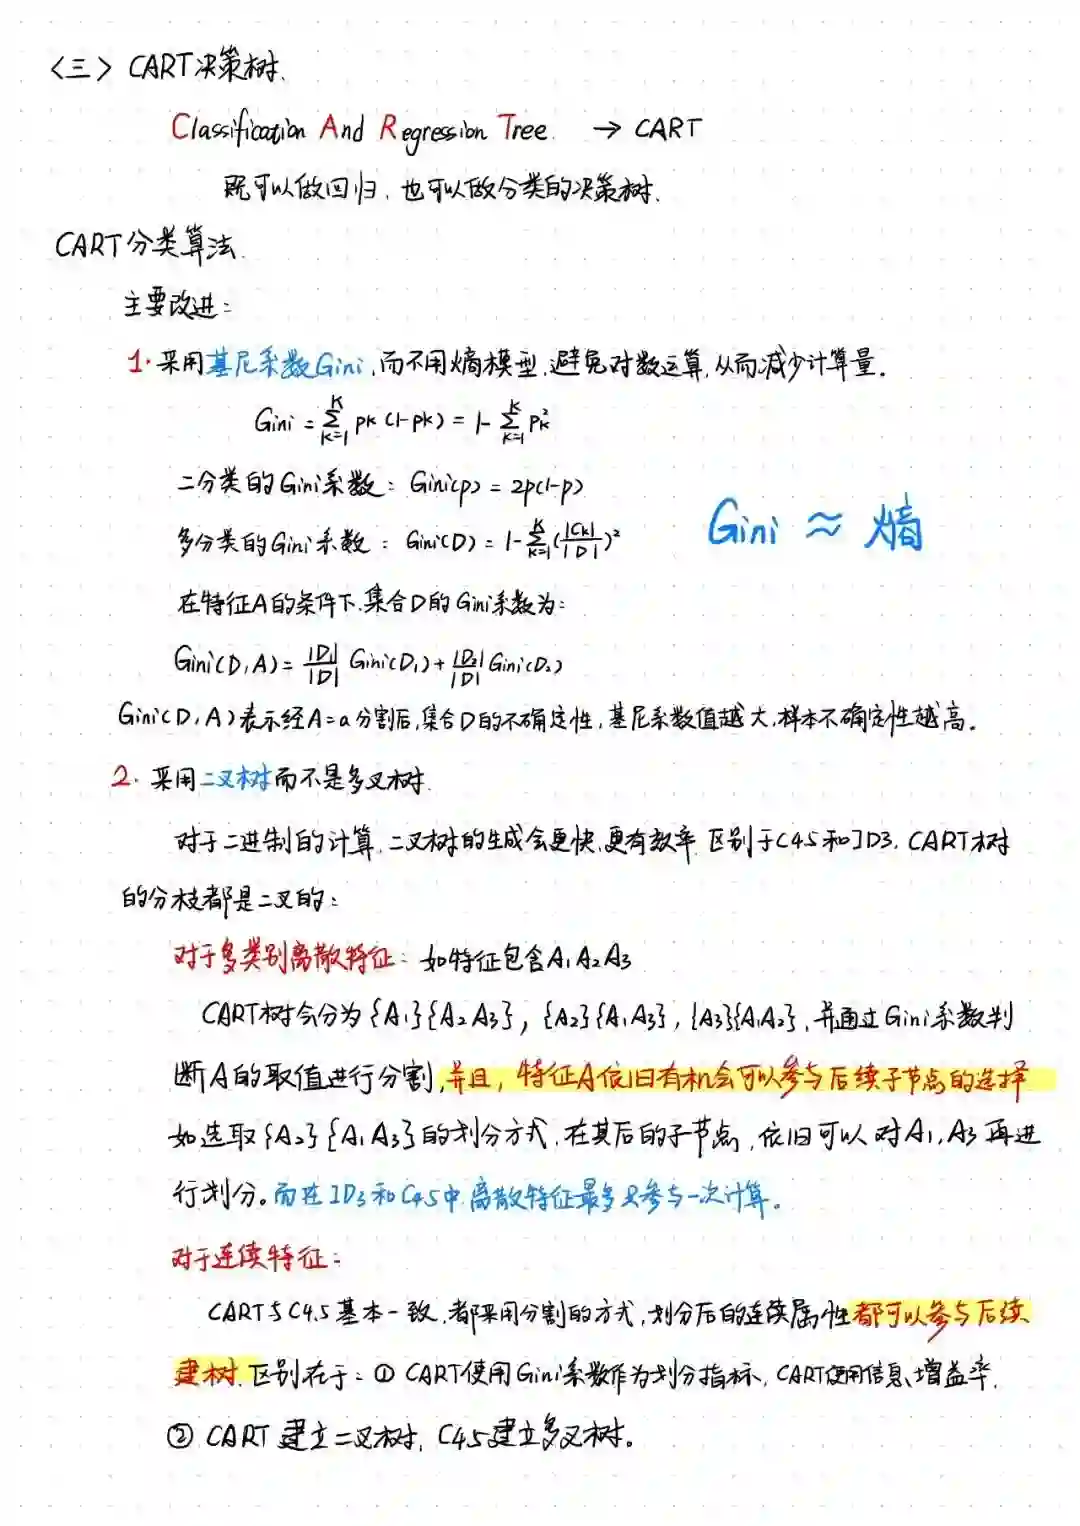 〈三〉CART决策树.
Classification And Regression Tree. → CART
既可以做回归,也可以做分类的决策树.
CART分类算法.
主要改进:
1. 采用基尼系数Gini,而不用熵模型,避免对数运算,从而减少计算量。
Gini = ∑_{k=1}^{K} pk(1-pk) = 1 - ∑_{k=1}^{K} pk²
二分类的Gini系数: Gini(p) = 2p(1-p)
多分类的Gini系数: Gini(D) = 1 - ∑_{k=1}^{K} (|Ck|/|D|)²
Gini ≈ 熵
在特征A的条件下,集合D的Gini系数为:
Gini(D,A) = |D₁|/|D| Gini(D₁) + |D₂|/|D| Gini(D₂)
Gini(D,A)表示经A=a分割后,集合D的不确定性,基尼系数值越大,样本不确定性越高。
2. 采用二叉树而不是多叉树.
对于二进制的计算,二叉树的生成会更快,更有效率.区别于C4.5和ID3,CART树
的分枝都是二叉的:
对于多类别离散特征: 如特征包含A₁A₂A₃
CART树会分为{A₁}{A₂A₃}, {A₂}{A₁A₃}, {A₃}{A₁A₂},并通过Gini系数判
断A的取值进行分割,并且,特征A依旧有机会可以参与后续子节点的选择
如选取{A₂}{A₁A₃}的划分方式,在其后的子节点,依旧可以对A₁,A₃再进
行划分。而在ID3和C4.5中,离散特征最多只参与一次计算。
对于连续特征:
CART与C4.5基本一致,都采用分割的方式,划分后的连续属性都可以参与后续
建树.区别在于: ① CART使用Gini系数作为划分指标,CART使用信息增益率.
② CART建立二叉树, C4.5建立多叉树。